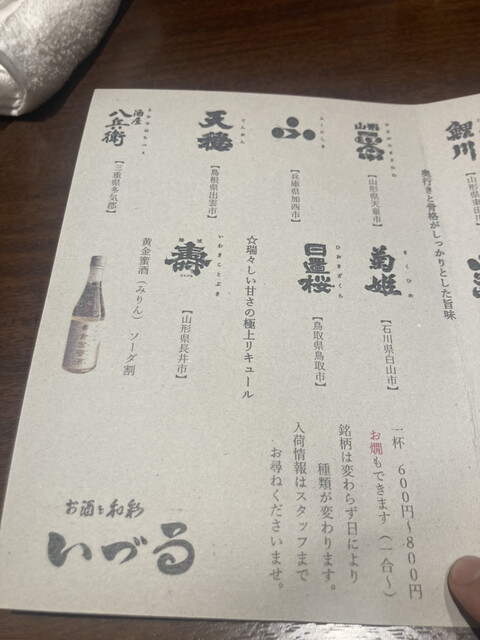 鯉川
【山形県東田川
奥行きと骨格がしっかりとした旨味
【山形県天童市】
ふ
【兵庫県加西市】
天穏
てんおん
【島根県出雲市】
酒屋
八兵衛
さかやはちべえ
【三重県多気郡】
菊姫
きくひめ
【石川県白山市】
日置桜
ひおきざくら
【鳥取県鳥取市】
☆瑞々しい甘さの極上リキュール
壽
いわきことぶき
【山形県長井市】
黄金蜜酒（みりん） ソーダ割
一杯 600円～800円
お燗もできます（一合～）
銘柄は変わらず日により
種類が変わります。
入荷情報はスタッフまで
お尋ねくださいませ。
お酒と和彩
いづる